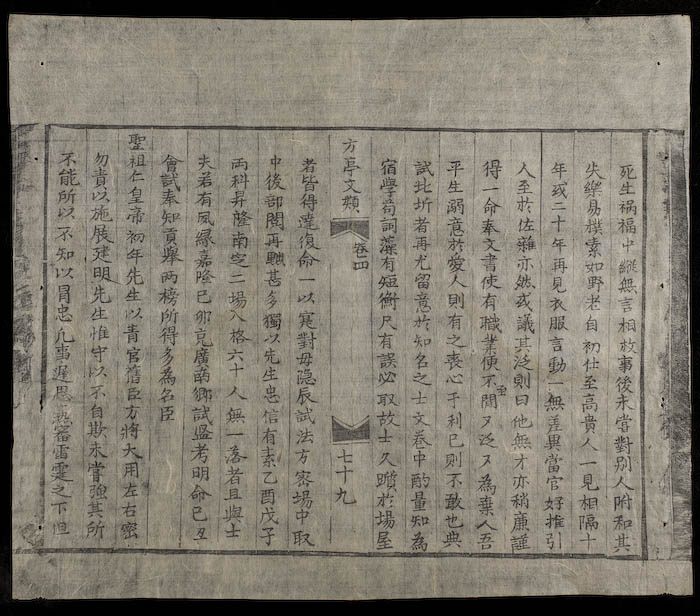 死生禍福中縱無言相救事後未嘗對別人附和其
失樂易樸素如野老自初仕至高貴人一見相隔十
年或二十年再見衣服言動一無差異當官好推引
人至於佐雜亦然或議其泛則曰他無才亦稍廉謹
得一命奉文書使有職業使不閒又泛又為棄人吾
平生溺意於愛人則有之喪心干利已則不敢也典
試北圻者再尤留意於知名之士文卷中酌量知為
宿學苟詞藻有短衡尺有誤必取故士久躓於場屋
方亭文類 卷四 七十九
者皆得達復命一以寔對毋隐辰試法方密場中取
中後部閱再黜甚多獨以先生忠信有素乙酉戊子
兩科昇隆南定二場入格六十人無一落者且與士
夫若有風緣嘉隆已卯充廣南鄉試監考明命已丑
會試奉知貢舉兩榜所得多為名臣
聖祖仁皇帝初年先生以青宮舊臣方將大用左右密
勿責以施展建明先生惟守以不自欺未嘗強其所
不能所以不知以冒忠凡事遲思熱審雷霆之下但